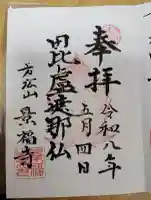 奉拝
令和八年
五月四日
毘盧遮那仏
方広山
景福寺